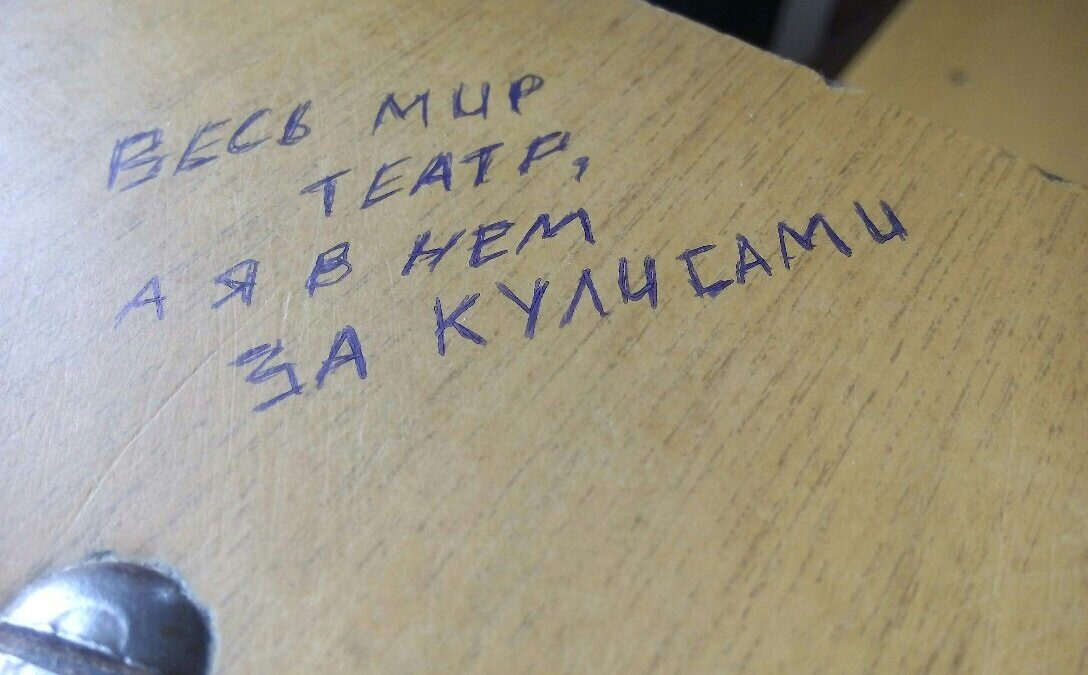 ВЕСЬ МИР
ТЕАТР,
А Я В НЕМ
ЗА КУЛИСАМИ